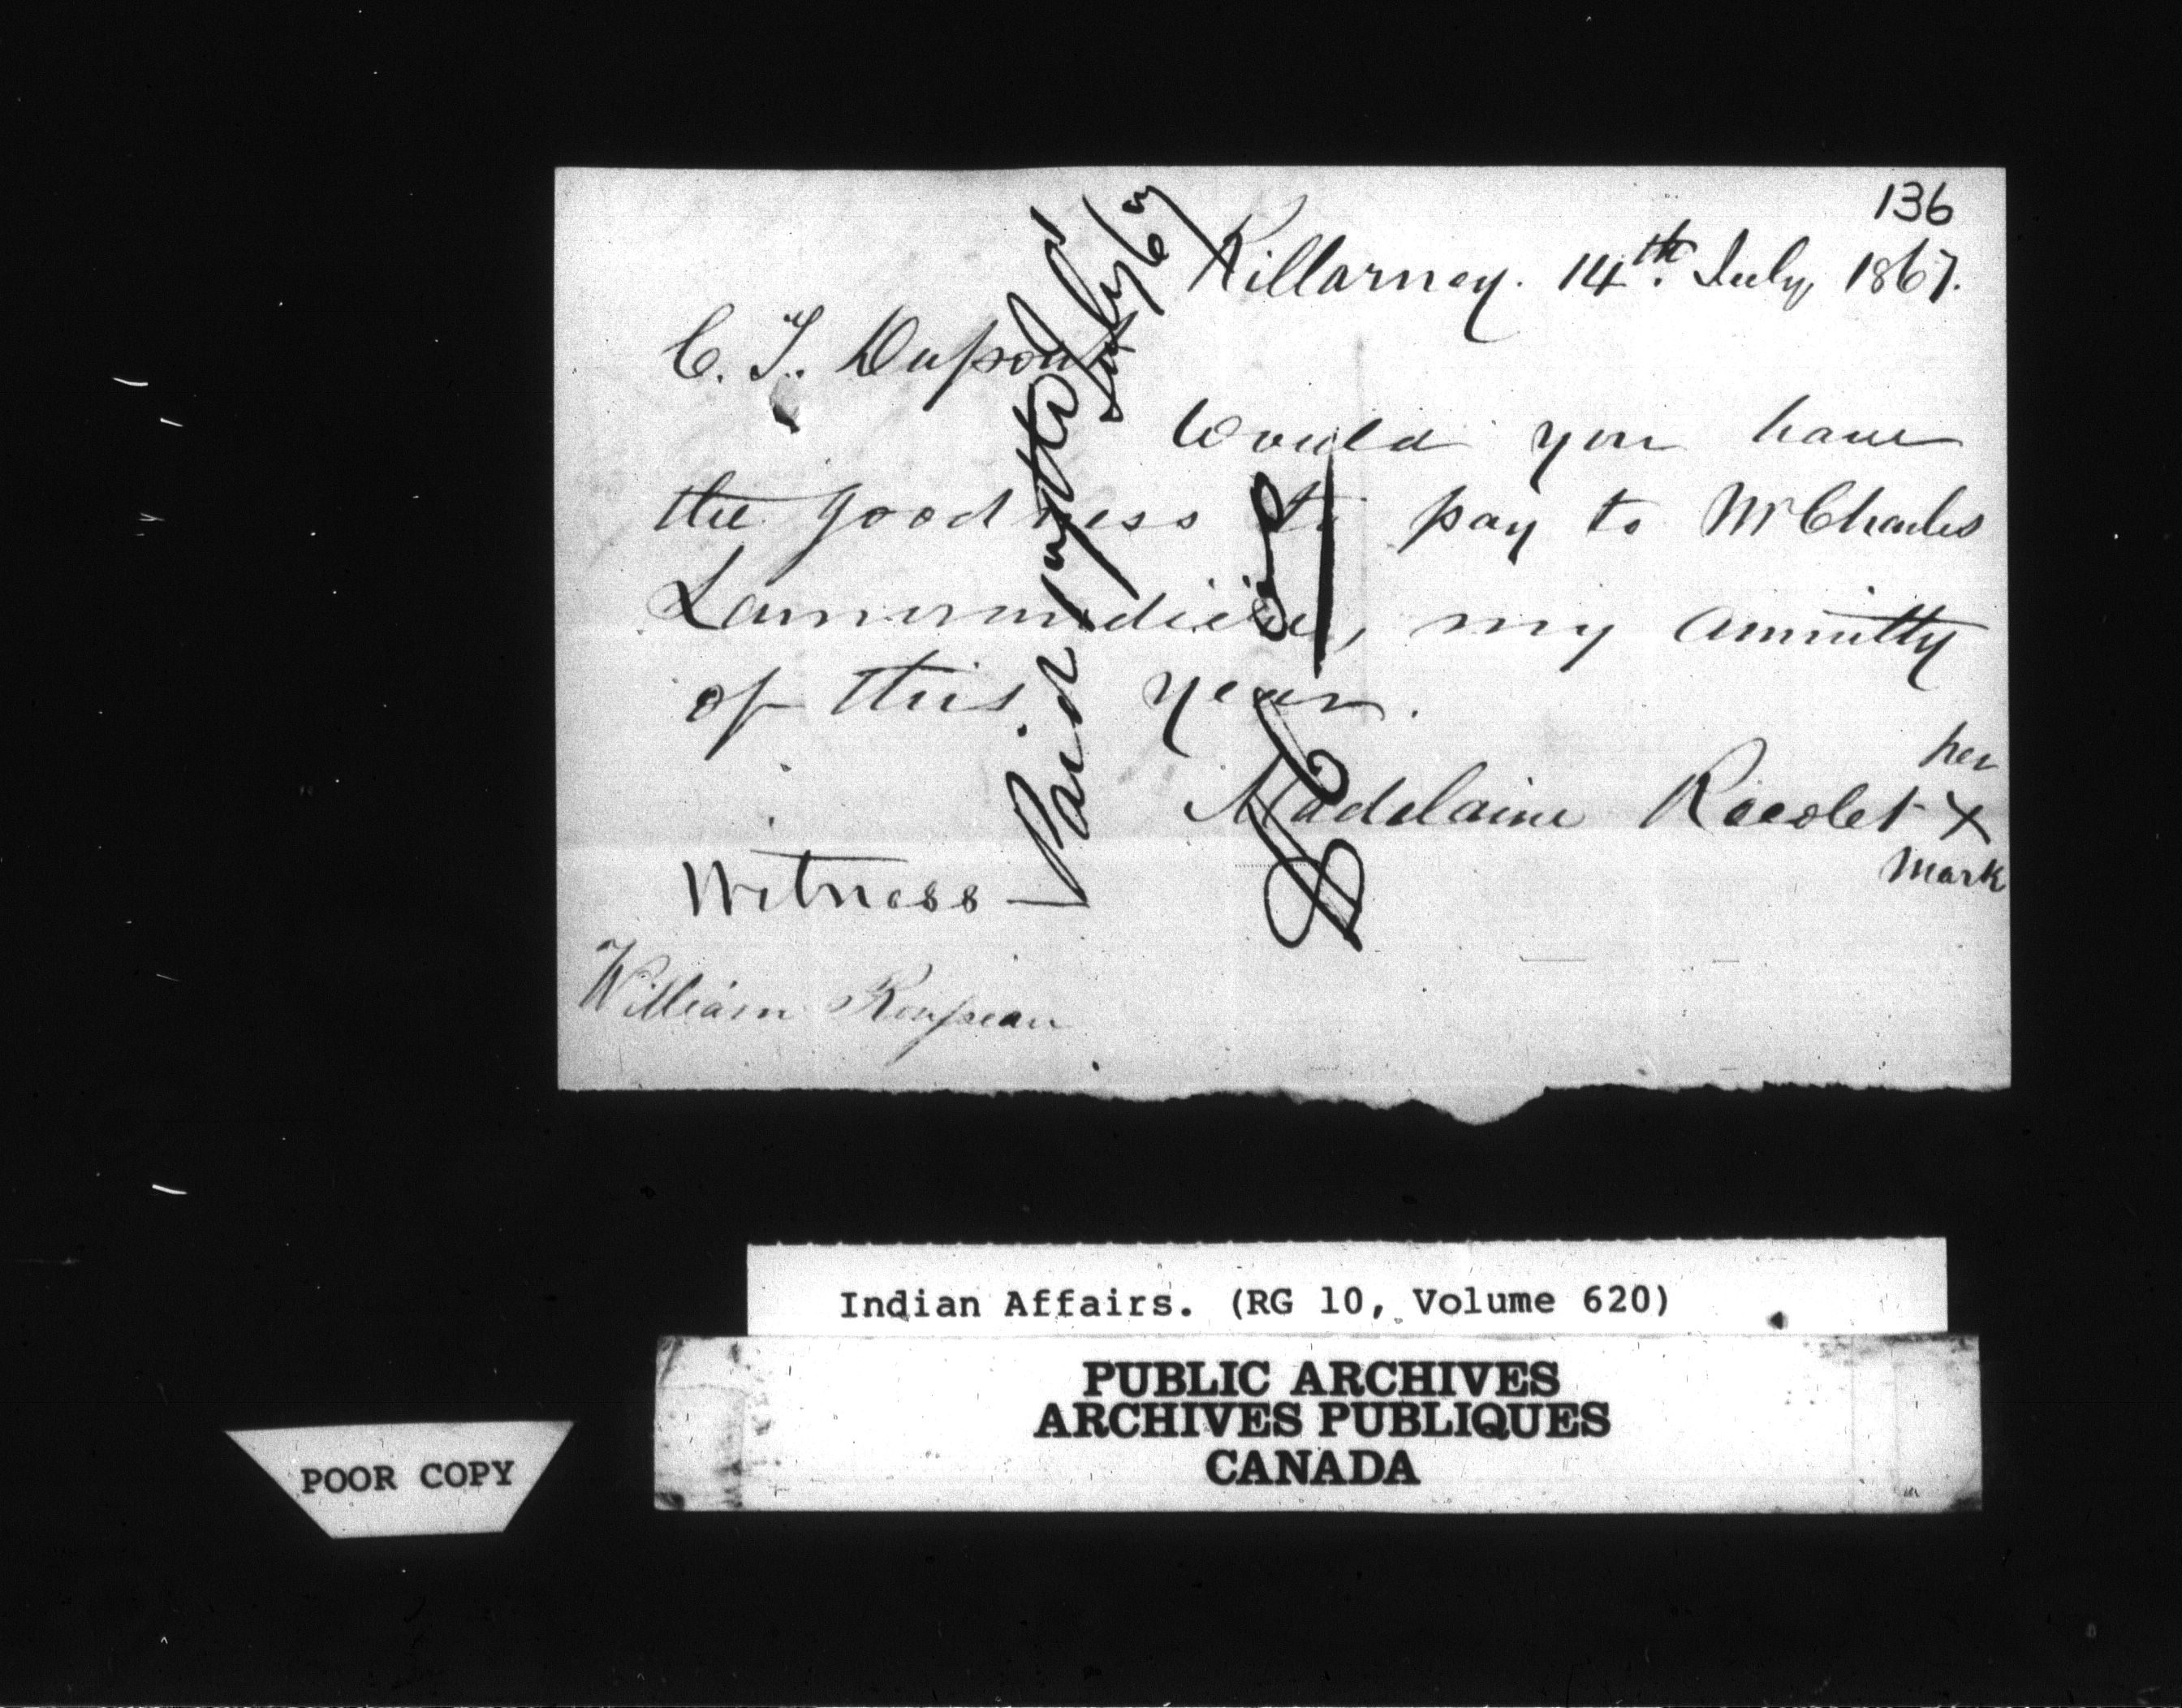 136
Killarney. 14th. July, 1867.
C. T. Dupont
Would you have
the goodness to pay to Mr Charles
my annuitty
of this year.
her
Madelaine Recolet X
mark
Witness
William Rousseau
Paid
July 67
Indian Affairs. (RG 10, Volume 620)
PUBLIC ARCHIVES
ARCHIVES PUBLIQUES
CANADA
POOR COPY